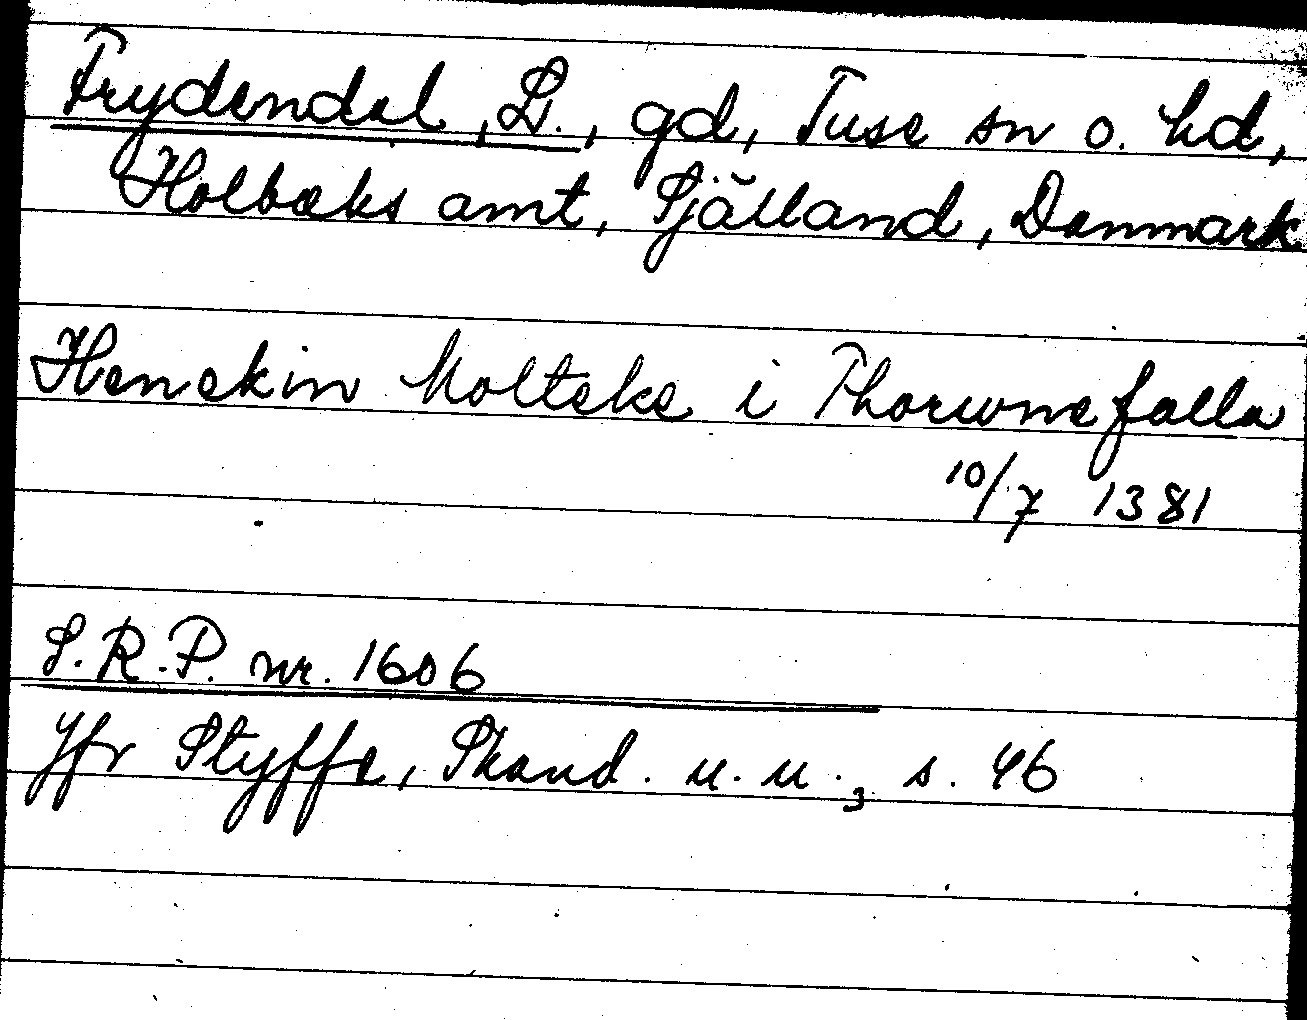 Frydendal, L., gd, Tuse sn o. hd,
Holbæks amt, Själland, Danmark
Henekin Molteke i Thorwnefalla
10/7 1381
S.R.P. nr. 1606
Jfr Styffe, Skand. u. u., s. 46